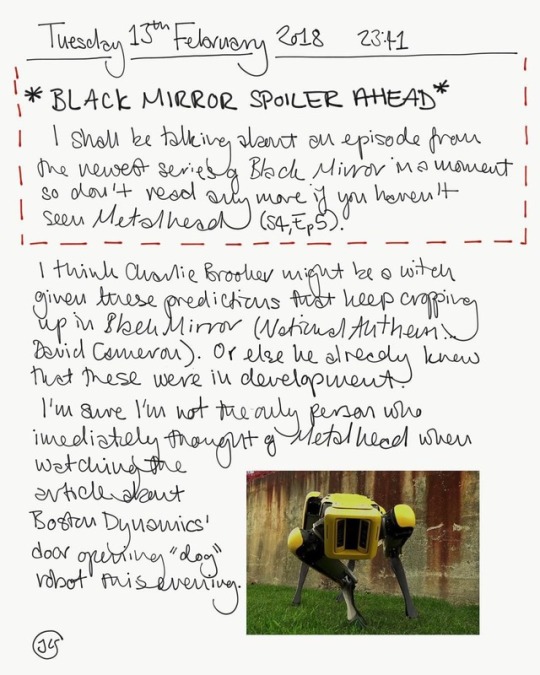 Tuesday 13th February 2018 23:41
*BLACK MIRROR SPOILER AHEAD*
I shall be talking about an episode from
the newest series of Black Mirror in a moment
so don't read any more if you haven't
seen Metalhead (S4, Ep5).
I think Charlie Brooker might be a witch
given these predictions that keep cropping
up in Black Mirror (National Anthem...
David Cameron). Or else he already knew
that these were in development.
I'm sure I'm not the only person who
imediately thought of Metalhead when
watching the
article about
Boston Dynamics'
door opening "dog"
robot this evening.